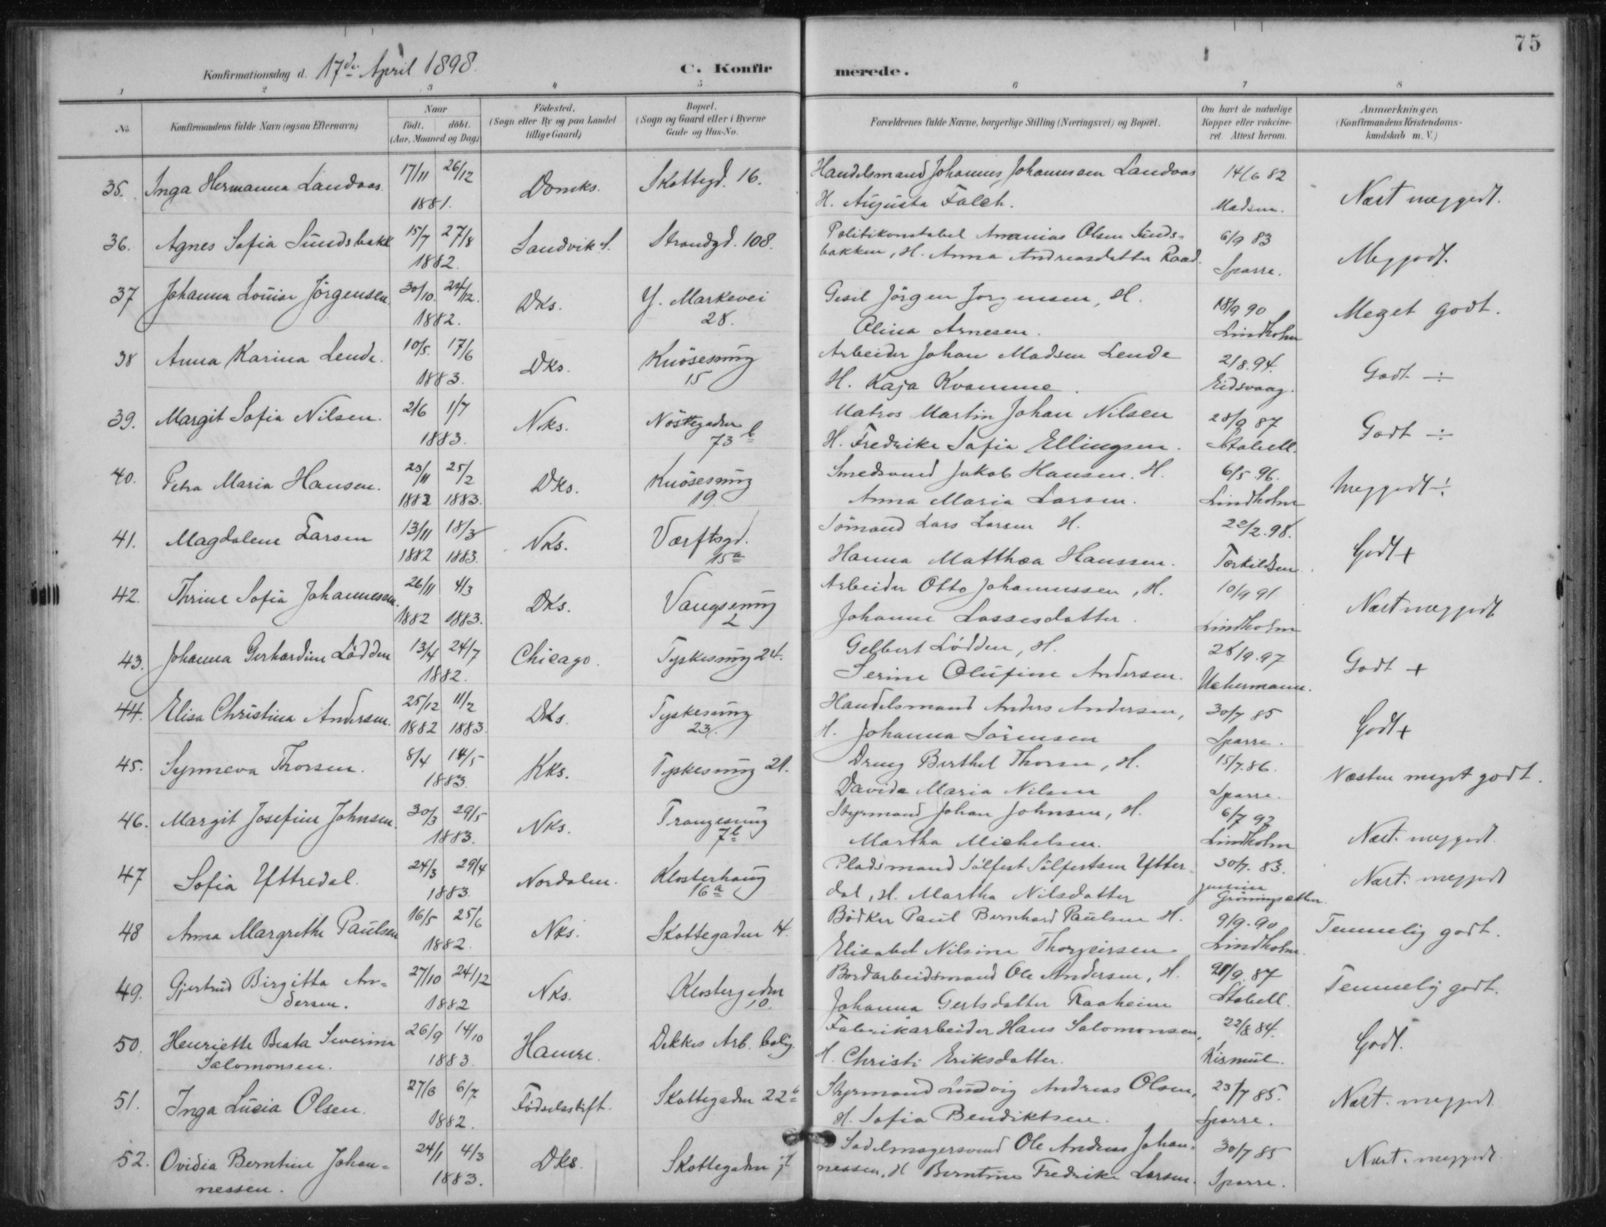 75
Konfirmationsdag d. 17de April 1898.
C. Konfirmerede.
1 2 3 4 5 6 7 8
No
Konfirmandens fulde Navn (ogsaa Efternavn)
Naar
født. døbt.
(Aar, Maaned og Dag)
Fødested.
(Sogn eller By og paa Landet
tillige Gaard)
Bopæl.
(Sogn og Gaard eller i Byerne
Gade og Hus-No.
Forældrenes fulde Navne, borgerlige Stilling (Næringsvei) og Bopæl.
Om havt de naturlige
Kopper eller vaccine-
ret. Attest herom.
Anmærkninger.
(Konfirmandens Kristendoms-
kundskab m. V.)
35. Inga Hermanna Landaas 17/11 26/12 1881. Domks. Skottegd. 16. Handelsmand Johannes Johannesen Landaas 14/6 82
H. Augusta Falch. Madsen. Næst meggodt.
36. Agnes Sofia Sundsbakk 15/7 27/8 1882. Sandvik S. Strandgd. 108. Politikonstabel Ananias Olsen Sunds- 6/9 83
bakken, H. Anna Andreasdatter Raad. Sparre. Meggodt.
37 Johanna Louise Jörgensen 30/10. 24/12. 1882. Dks. Y. Markevei 28. Gesel Jörgen Jorgensen, H. 18/9 90
Olina Arnesen. Lindholm Meget godt.
38 Anna Karina Lende. 10/5. 17/6 1883. Dks. Knösesmug 15 Arbeider Johan Madsen Lende 21/8. 94.
H. Kaja Kvamme. Eidsvaag. Godt ÷
39. Margit Sofia Nilsen. 2/6 1/7 1883. Nks. Nöstegaden 73 b Matros Martin Johan Nilsen 28/9 87
H. Fredrike Sofia Ellingsen. Stabell. Godt ÷
40. Petra Maria Hansen. 23/11 25/2 1882 1883. Dks. Knösesmug 19. Smedsvend Jakob Hansen. H. 6/5 96.
Anna Maria Larsen. Lindholm meggodt ÷
41. Magdalene Larsen 13/11 18/3 1882 1883. Nks. Værftsgd. 15 a Sömand Lars Larsen H. 22/2. 98.
Hanna Matthea Hanssen. Torkildsen. Godt +
42. Thrine Sofia Johannesen. 26/11 4/3 1882 1883. Dks. Vangsmug 2 Arbeider Otto Johannessen, H. 10/9 91
Johanne Lassesdatter. Lindholm Næst meggodt
43. Johanna Gerhardine Lødden 13/4 24/7 1882. Chicago. Tyskesmug 24. Gelbert Lødden, H. 28/9. 97
Serine Olufine Andersen. Uchermann. Godt +
44. Elisa Christina Andersen. 25/12 11/2 1882 1883. Dks. Tyskesmug 23. Handelsmand Anders Andersen, 30/7 85
H. Johanna Sörensen Sparre. Godt +
45. Synneva Thorsen. 8/4 14/5 1883. Kks. Tyskesmug 21. Dreng Berthel Thorsen, H. 15/7. 86.
Davida Maria Nilsen Sparre. Næsten meget godt.
46. Margit Josefine Johnsen. 30/3 29/5 1883. Nks. Trangesmug 7 b Styrmand Johan Johnsen, H. 6/7 92
Martha Michelsen. Lindholm Næst. meggodt.
47 Sofia Yttredal. 24/3 29/4 1883. Nordalen. Klosterhaug 16 a Pladsmand Sölfest Sölfestsen Ytter- 30/7. 83.
dal, H. Martha Nilsdatter Gröningsæter. Næst. meggodt
48 Anna Margrethe Paulsen 16/5 25/6 1882. Nks. Skottegaden 14. Bødker Paul Bernhard Paulsen H. 9/9. 90
Elisabet Nilsine Thorgeirsen Lindholm. Temmelig godt.
49. Gjertrud Birgitta An-
dersen. 27/10 24/12 1882 Nks. Klostergaden 10. Bordarbeidsmand Ole Andersen, H. 28/9. 87
Johanna Gertsdatter Raaheim Stabell. Temmelig godt.
50. Henriette Beata Severine
Salomonsen. 26/9 14/10 1883 Hamre. Dekkes Arb. bolig. Fabrikarbeider Hans Salomonsen, 22/8 84.
H. Christi Eriksdatter. Godt.
51. Inga Lucia Olsen. 27/3 6/7 1882. Födselsstift. Skottegaden 22 b Styrmand Ludvig Andreas Olsen, 23/7 85.
H. Sofia Bendiktsen. Sparre. Næst. meggodt
52. Ovidia Berntine Johan-
nessen. 24/1 4/3 1883. Dks. Skottegaden 7 Sadelmagersvend Ole Andreas Johan- 30/7 85
nessen, H Berntine Fredrike Larsen. Sparre. Næst. meggodt.